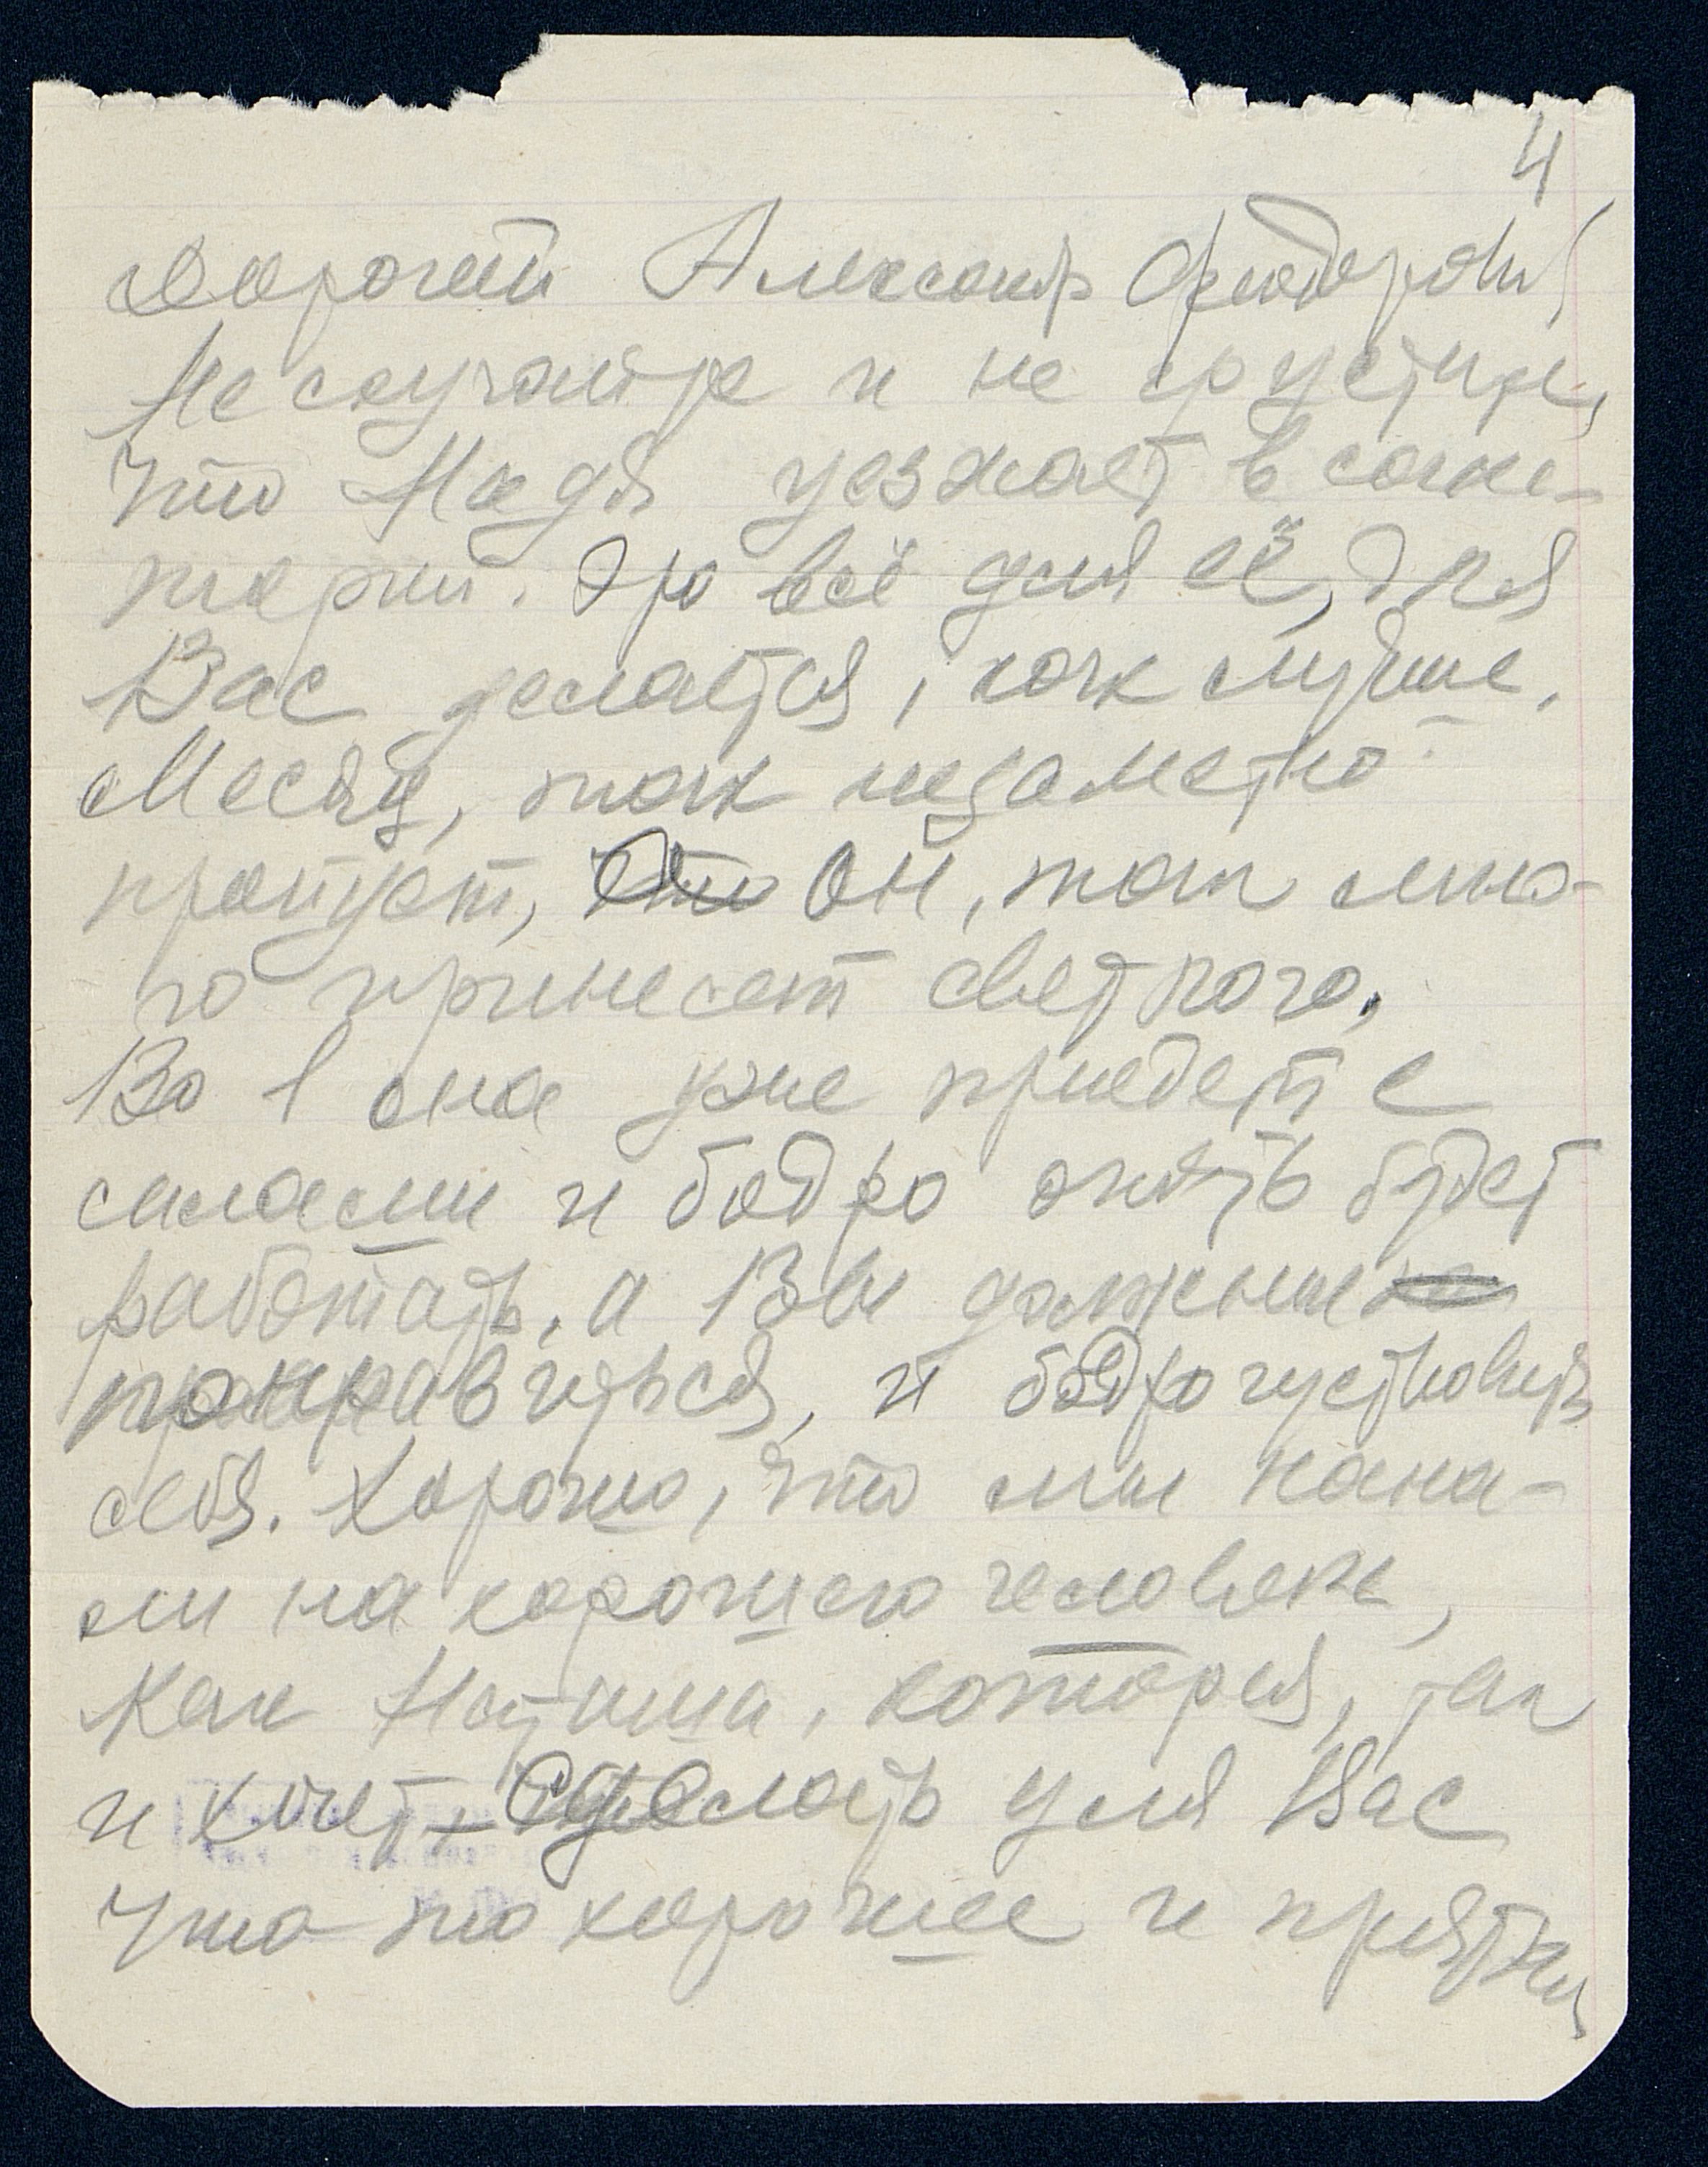 4
Дорогой Александр Федорович
Не скучайте и не грустите,
что Надя уезжает в сана-
торий. Это всё для её, для
Вас делается, как лучше.
Месяц, так незаметно
пройдет, он, так мно-
го принесет светлого.
Во 1 она уже приедет с
силами и бодро опять будет
работать, а Вы должны
поправиться, и бодро чуствовать
себя. Хорошо, что мы напа-
ли на хорошего человека,
как Натиша, которая, так
и хочет, сделать для Вас
что то хорошее и приятн